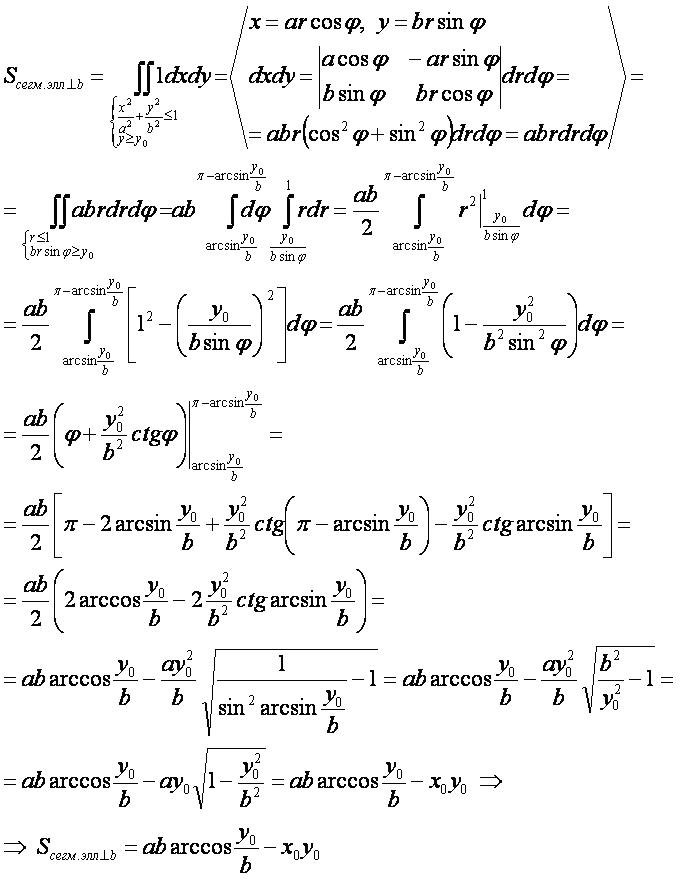 S_{сегм.элл⊥b} = ∬_{\begin{cases} \frac{x^2}{a^2}+\frac{y^2}{b^2}≤1 \\ y≥y_0 \end{cases}} 1dxdy = ⟨ x = ar cos φ, y = br sin φ
dxdy = \begin{vmatrix} a cos φ & -ar sin φ \\ b sin φ & br cos φ \end{vmatrix} drdφ =
= abr(cos² φ + sin² φ)drdφ = abrdrdφ ⟩ =
= ∬_{\begin{cases} r≤1 \\ br sin φ≥y_0 \end{cases}} abrdrdφ = ab ∫_{arcsin\frac{y_0}{b}}^{π-arcsin\frac{y_0}{b}} dφ ∫_{\frac{y_0}{b sin φ}}^{1} rdr = \frac{ab}{2} ∫_{arcsin\frac{y_0}{b}}^{π-arcsin\frac{y_0}{b}} r^2 |_{\frac{y_0}{b sin φ}}^{1} dφ =
= \frac{ab}{2} ∫_{arcsin\frac{y_0}{b}}^{π-arcsin\frac{y_0}{b}} [1^2 - (\frac{y_0}{b sin φ})^2] dφ = \frac{ab}{2} ∫_{arcsin\frac{y_0}{b}}^{π-arcsin\frac{y_0}{b}} (1 - \frac{y_0^2}{b^2 sin^2 φ}) dφ =
= \frac{ab}{2} (φ + \frac{y_0^2}{b^2} ctgφ) |_{arcsin\frac{y_0}{b}}^{π-arcsin\frac{y_0}{b}} =
= \frac{ab}{2} [π - 2 arcsin \frac{y_0}{b} + \frac{y_0^2}{b^2} ctg(π - arcsin \frac{y_0}{b}) - \frac{y_0^2}{b^2} ctg arcsin \frac{y_0}{b}] =
= \frac{ab}{2} (2 arccos \frac{y_0}{b} - 2 \frac{y_0^2}{b^2} ctg arcsin \frac{y_0}{b}) =
= ab arccos \frac{y_0}{b} - \frac{ay_0^2}{b} \sqrt{\frac{1}{sin^2 arcsin \frac{y_0}{b}} - 1} = ab arccos \frac{y_0}{b} - \frac{ay_0^2}{b} \sqrt{\frac{b^2}{y_0^2} - 1} =
= ab arccos \frac{y_0}{b} - ay_0 \sqrt{1 - \frac{y_0^2}{b^2}} = ab arccos \frac{y_0}{b} - x_0y_0 ⇒
⇒ S_{сегм.элл⊥b} = ab arccos \frac{y_0}{b} - x_0y_0